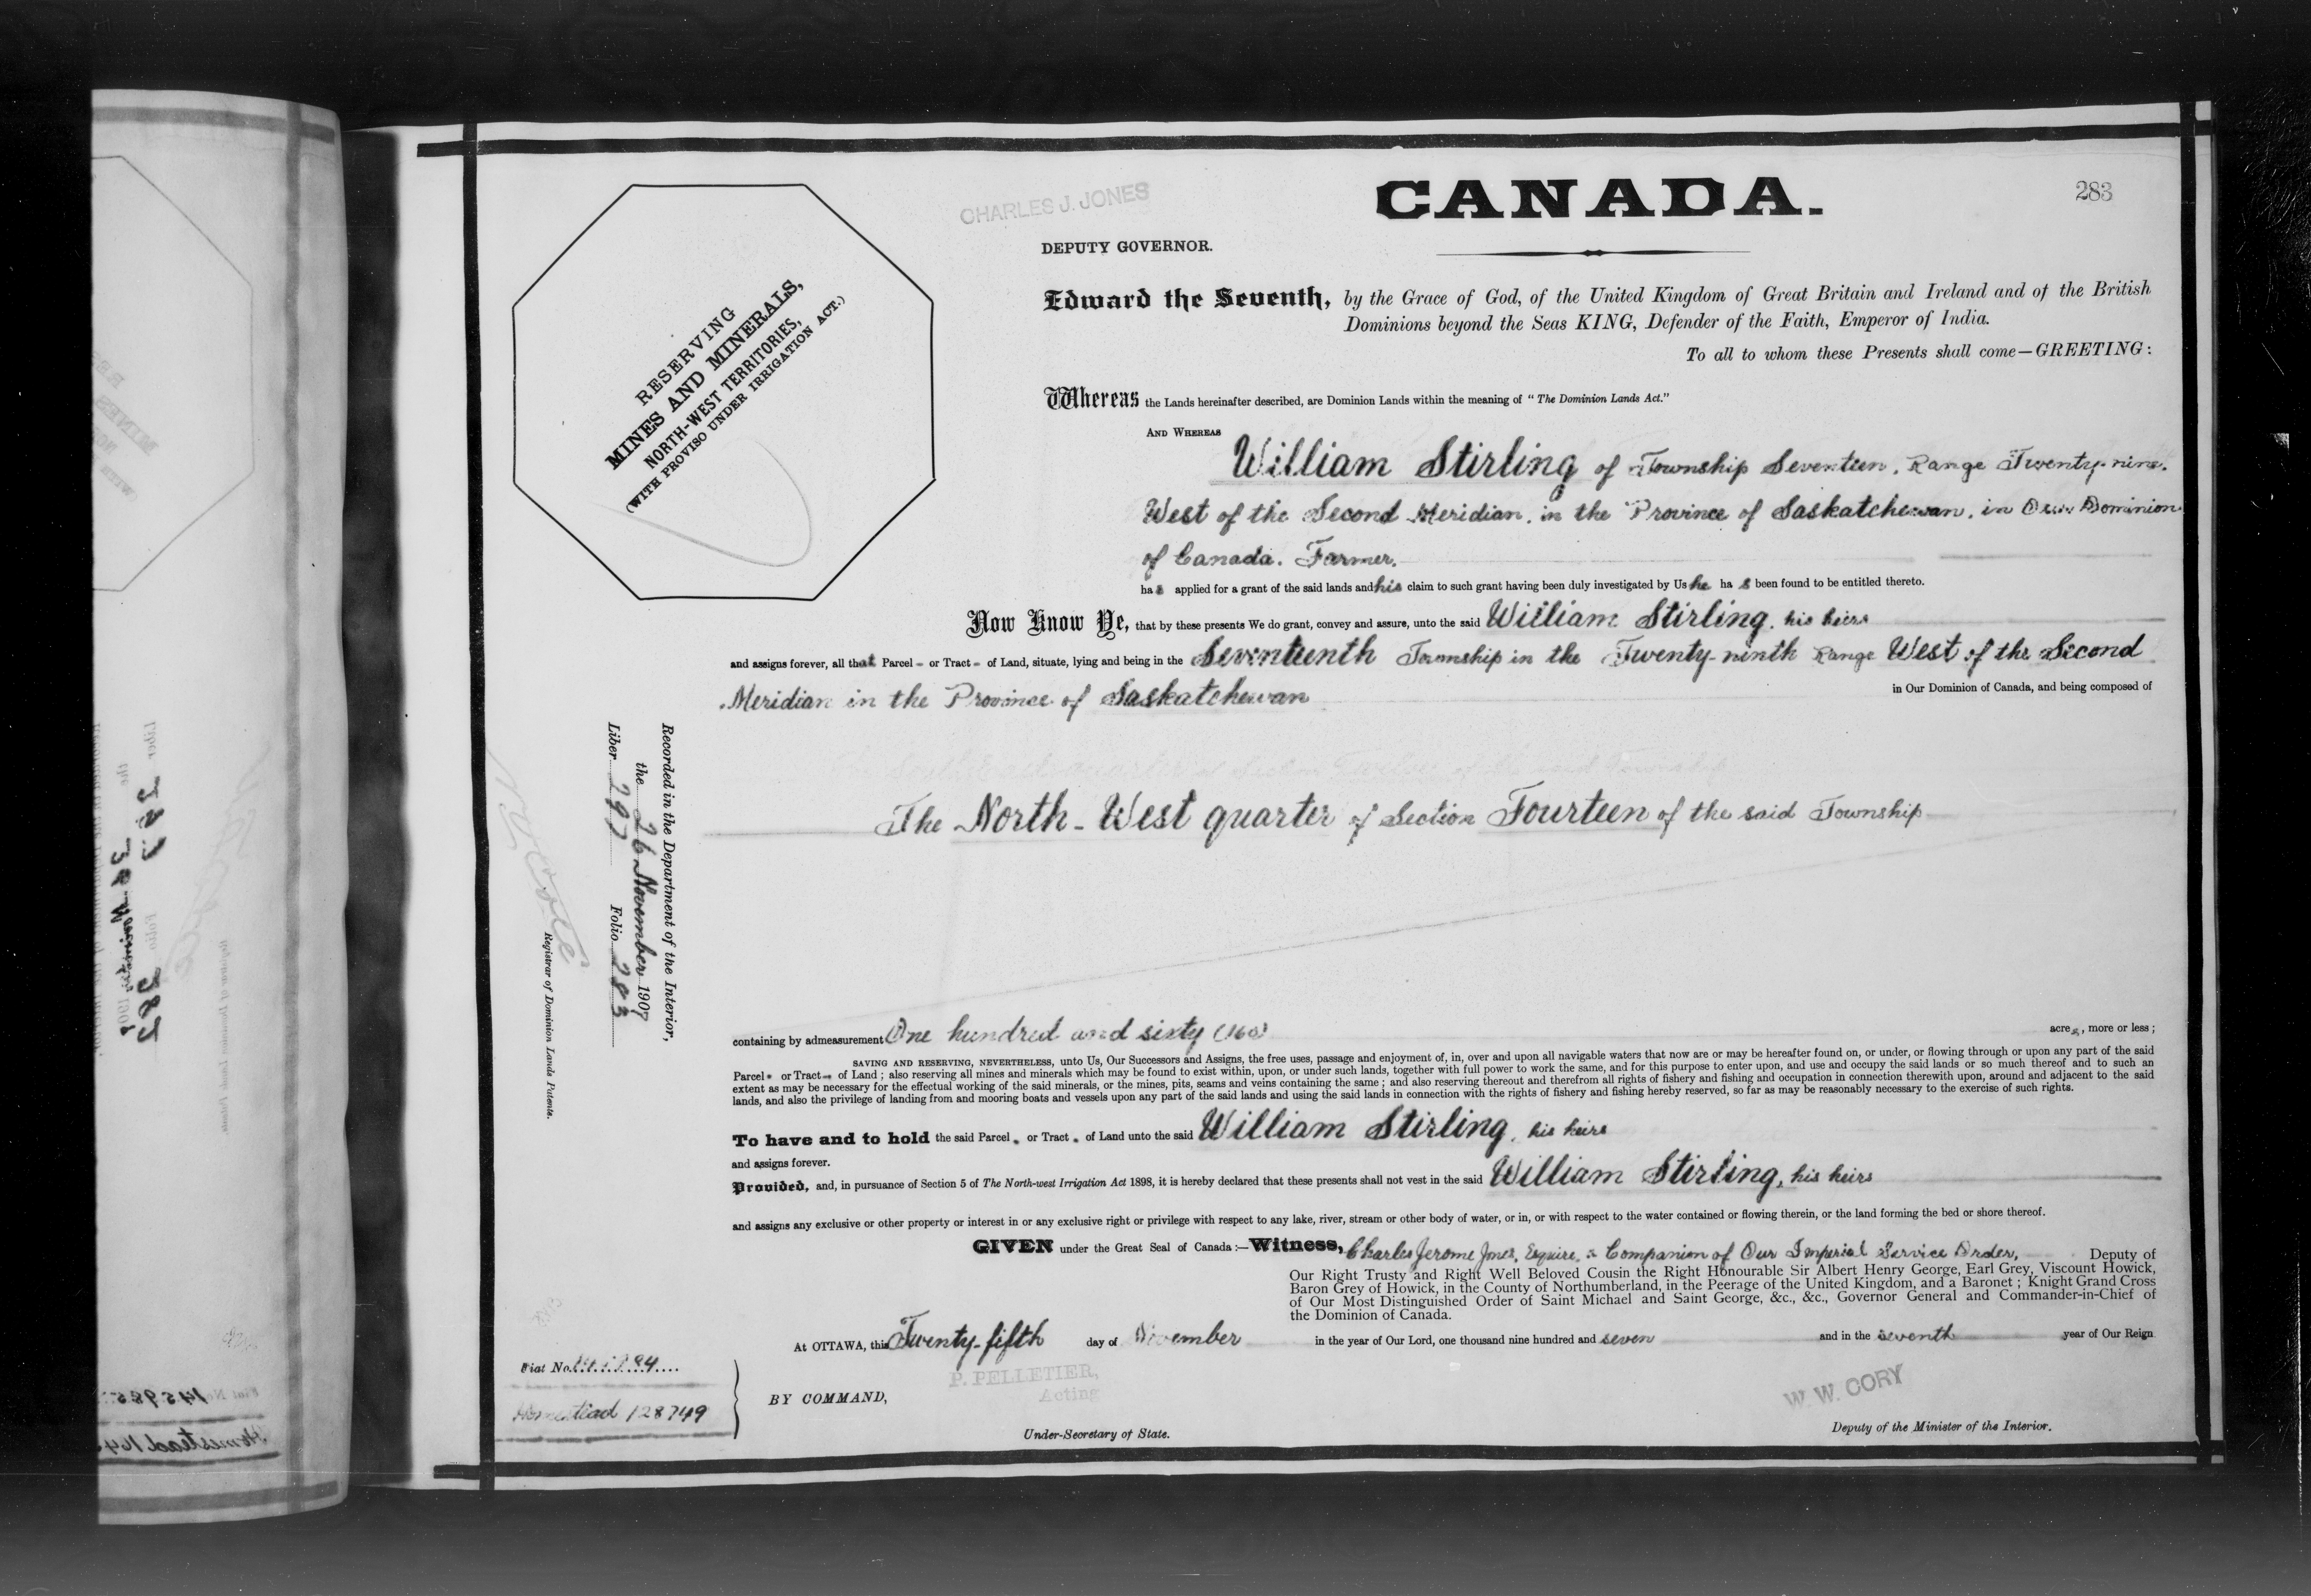 283
CHARLES J. JONES
CANADA.
DEPUTY GOVERNOR.
RESERVING
MINES AND MINERALS,
NORTH-WEST TERRITORIES,
(WITH PROVISO UNDER IRRIGATION ACT.)
Edward the Seventh, by the Grace of God, of the United Kingdom of Great Britain and Ireland and of the British
Dominions beyond the Seas KING, Defender of the Faith, Emperor of India.
To all to whom these Presents shall come—GREETING:
Whereas the Lands hereinafter described, are Dominion Lands within the meaning of "The Dominion Lands Act."
AND WHEREAS
William Stirling of Township Seventeen, Range Twenty-nine,
West of the Second Meridian, in the Province of Saskatchewan, in Our Dominion
of Canada, Farmer,
has applied for a grant of the said lands and his claim to such grant having been duly investigated by Us he has been found to be entitled thereto.
Now Know Ye, that by these presents We do grant, convey and assure, unto the said William Stirling, his heirs
and assigns forever, all that Parcel - or Tract - of Land, situate, lying and being in the Seventeenth Township in the Twenty-ninth Range West of the Second
Meridian in the Province of Saskatchewan in Our Dominion of Canada, and being composed of
The North-West quarter of Section Fourteen of the said Township
Recorded in the Department of the Interior,
the 26 November 1907
Liber 297 Folio 283
Registrar of Dominion Lands Patents.
containing by admeasurement One hundred and sixty (160) acres, more or less;
SAVING AND RESERVING, NEVERTHELESS, unto Us, Our Successors and Assigns, the free uses, passage and enjoyment of, in, over and upon all navigable waters that now are or may be hereafter found on, or under, or flowing through or upon any part of the said
Parcel - or Tract - of Land; also reserving all mines and minerals which may be found to exist within, upon, or under such lands, together with full power to work the same, and for this purpose to enter upon, and use and occupy the said lands or so much thereof and to such an
extent as may be necessary for the effectual working of the said minerals, or the mines, pits, seams and veins containing the same; and also reserving thereout and therefrom all rights of fishery and fishing and occupation in connection therewith upon, around and adjacent to the said
lands, and also the privilege of landing from and mooring boats and vessels upon any part of the said lands and using the said lands in connection with the rights of fishery and fishing hereby reserved, so far as may be reasonably necessary to the exercise of such rights.
To have and to hold the said Parcel - or Tract - of Land unto the said William Stirling, his heirs
and assigns forever.
Provided, and, in pursuance of Section 5 of The North-west Irrigation Act 1898, it is hereby declared that these presents shall not vest in the said William Stirling, his heirs
and assigns any exclusive or other property or interest in or any exclusive right or privilege with respect to any lake, river, stream or other body of water, or in, or with respect to the water contained or flowing therein, or the land forming the bed or shore thereof.
GIVEN under the Great Seal of Canada:—Witness, Charles Jerome Jones, Esquire, a Companion of Our Imperial Service Order, Deputy of
Our Right Trusty and Right Well Beloved Cousin the Right Honourable Sir Albert Henry George, Earl Grey, Viscount Howick,
Baron Grey of Howick, in the County of Northumberland, in the Peerage of the United Kingdom, and a Baronet; Knight Grand Cross
of Our Most Distinguished Order of Saint Michael and Saint George, &c., &c., Governor General and Commander-in-Chief of
the Dominion of Canada.
At OTTAWA, this Twenty-fifth day of November in the year of Our Lord, one thousand nine hundred and seven and in the seventh year of Our Reign
Fiat No.
Homestead 128749
BY COMMAND,
P. PELLETIER,
Acting
Under-Secretary of State.
W. W. CORY
Deputy of the Minister of the Interior.